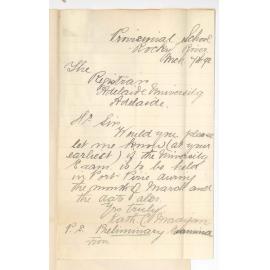 Provisional School
Rocky River
The
Registrar
Adelaide University
Adelaide.
Dr Sir
Would you please
let me know (at your
earliest) if the University
Exam. is to be held
in Port Pirie during
the month of March and
the date also.
Yrs truly
P.S. Preliminary Examina
tion